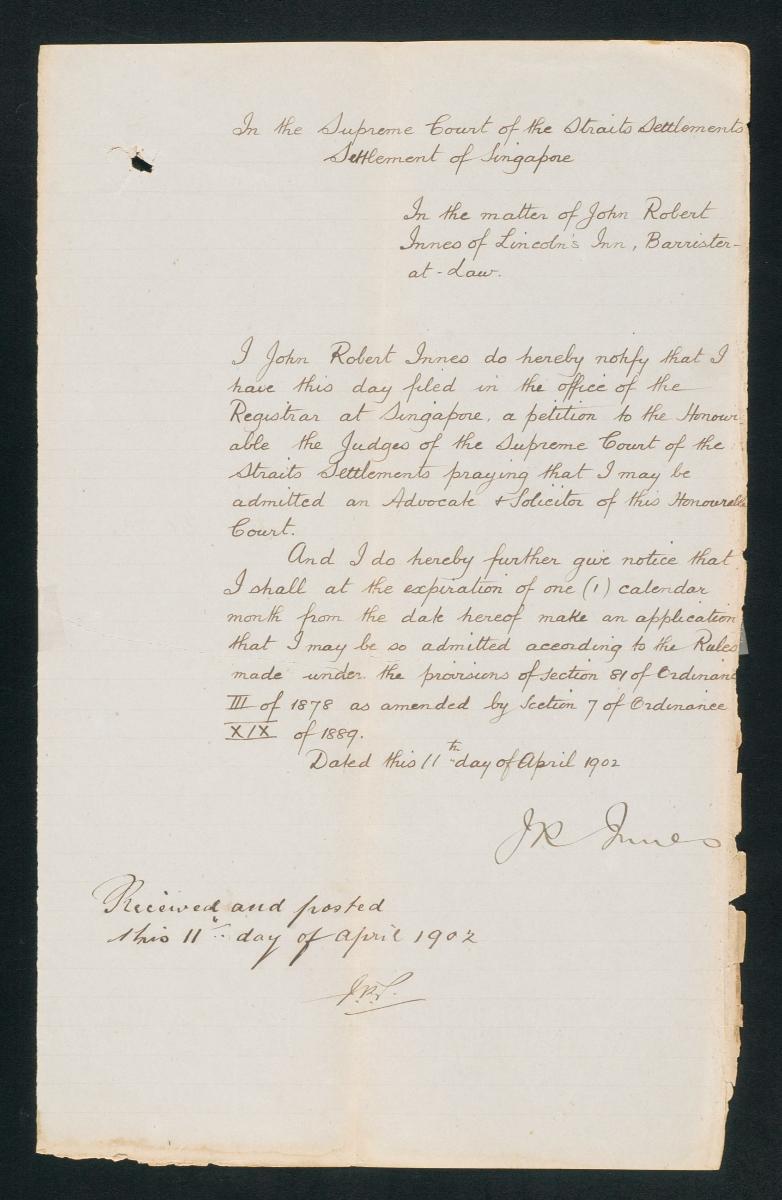 In the Supreme Court of the Straits Settlements
Settlement of Singapore
In the matter of John Robert
Innes of Lincoln's Inn, Barrister-
at-Law.
I John Robert Innes do hereby notify that I
have this day filed in the office of the
Registrar at Singapore, a petition to the Honour-
able the Judges of the Supreme Court of the
Straits Settlements praying that I may be
admitted an Advocate & Solicitor of this Honourable
Court.
And I do hereby further give notice that
I shall at the expiration of one (1) calendar
month from the date hereof make an application
that I may be so admitted according to the Rules
made under the provisions of Section 81 of Ordinanc
III of 1878 as amended by Section 7 of Ordinance
XIX of 1889.
Dated this 11th day of April 1902
JR Innes
Received and posted
this 11th day of April 1902